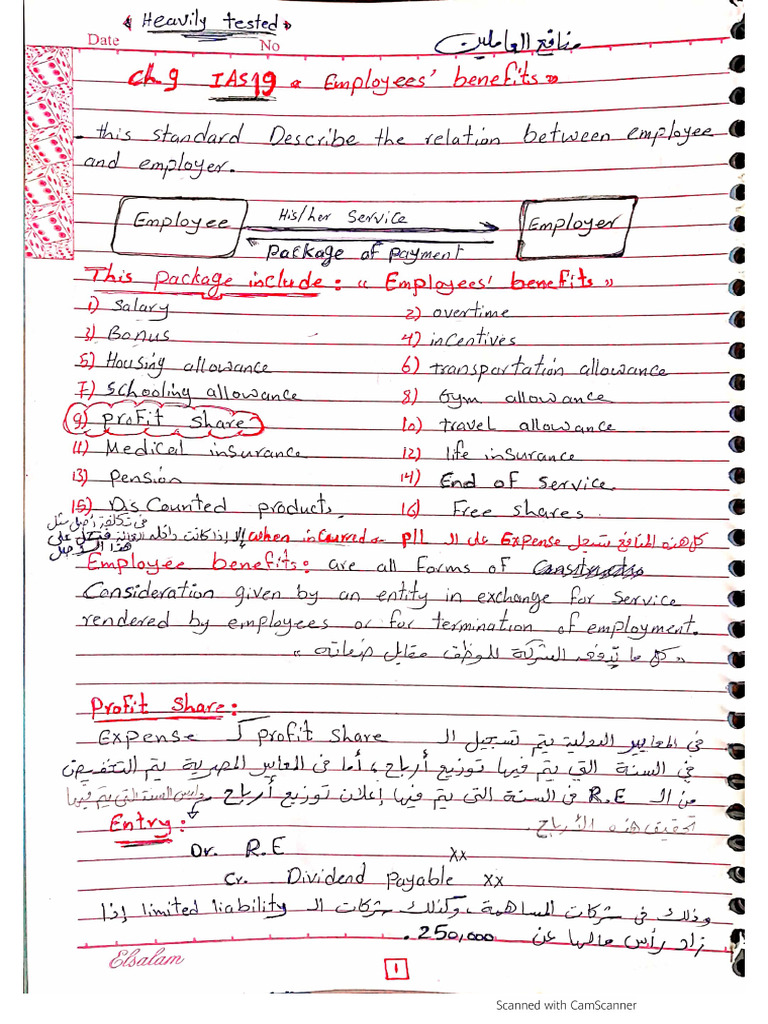 « Heavily tested »
Date No منافع العاملين
ch 9 IAS 19 « Employees' benefits »
- this standard Describe the relation between employee
and employer.
Employee His/her service Employer
package of payment
This package include: « Employees' benefits »
1) Salary 2) overtime
3) Bonus 4) incentives
5) Housing allowance 6) transportation allowance
7) schooling allowance 8) Gym allowance
9) profit share 10) travel allowance
11) Medical insurance 12) life insurance
13) pension 14) End of service.
15) Discounted products 16) Free shares.
فى تكلفة أصل مثل
كل هذه المنافع تسجل Expense على الـ P\L when incurred إلا إذا كانت داخله فتحمل على
هذا الأصل
Employee benefits: are all forms of
Consideration given by an entity in exchange for service
rendered by employees or for termination of employment.
« كل ما تدفعه الشركة للموظف مقابل خدماته »
Profit share:
فى المعايير الدولية يتم تسجيل الـ profit share كـ Expense
في السنة التى يتم فيها توزيع أرباح، أما فى المعايير المصرية يتم التخفيض
من الـ R.E فى السنة التى يتم فيها إعلان توزيع أرباح وليس السنة التى يتم فيها
تحقيق هذه الأرباح.
Entry:
Dr. R.E xx
Cr. Dividend Payable xx
وذلك فى شركات المساهمة، وكذلك شركات الـ limited liability إذا
زاد رأس مالها عن 250,000.
Elsalam
1
Scanned with CamScanner